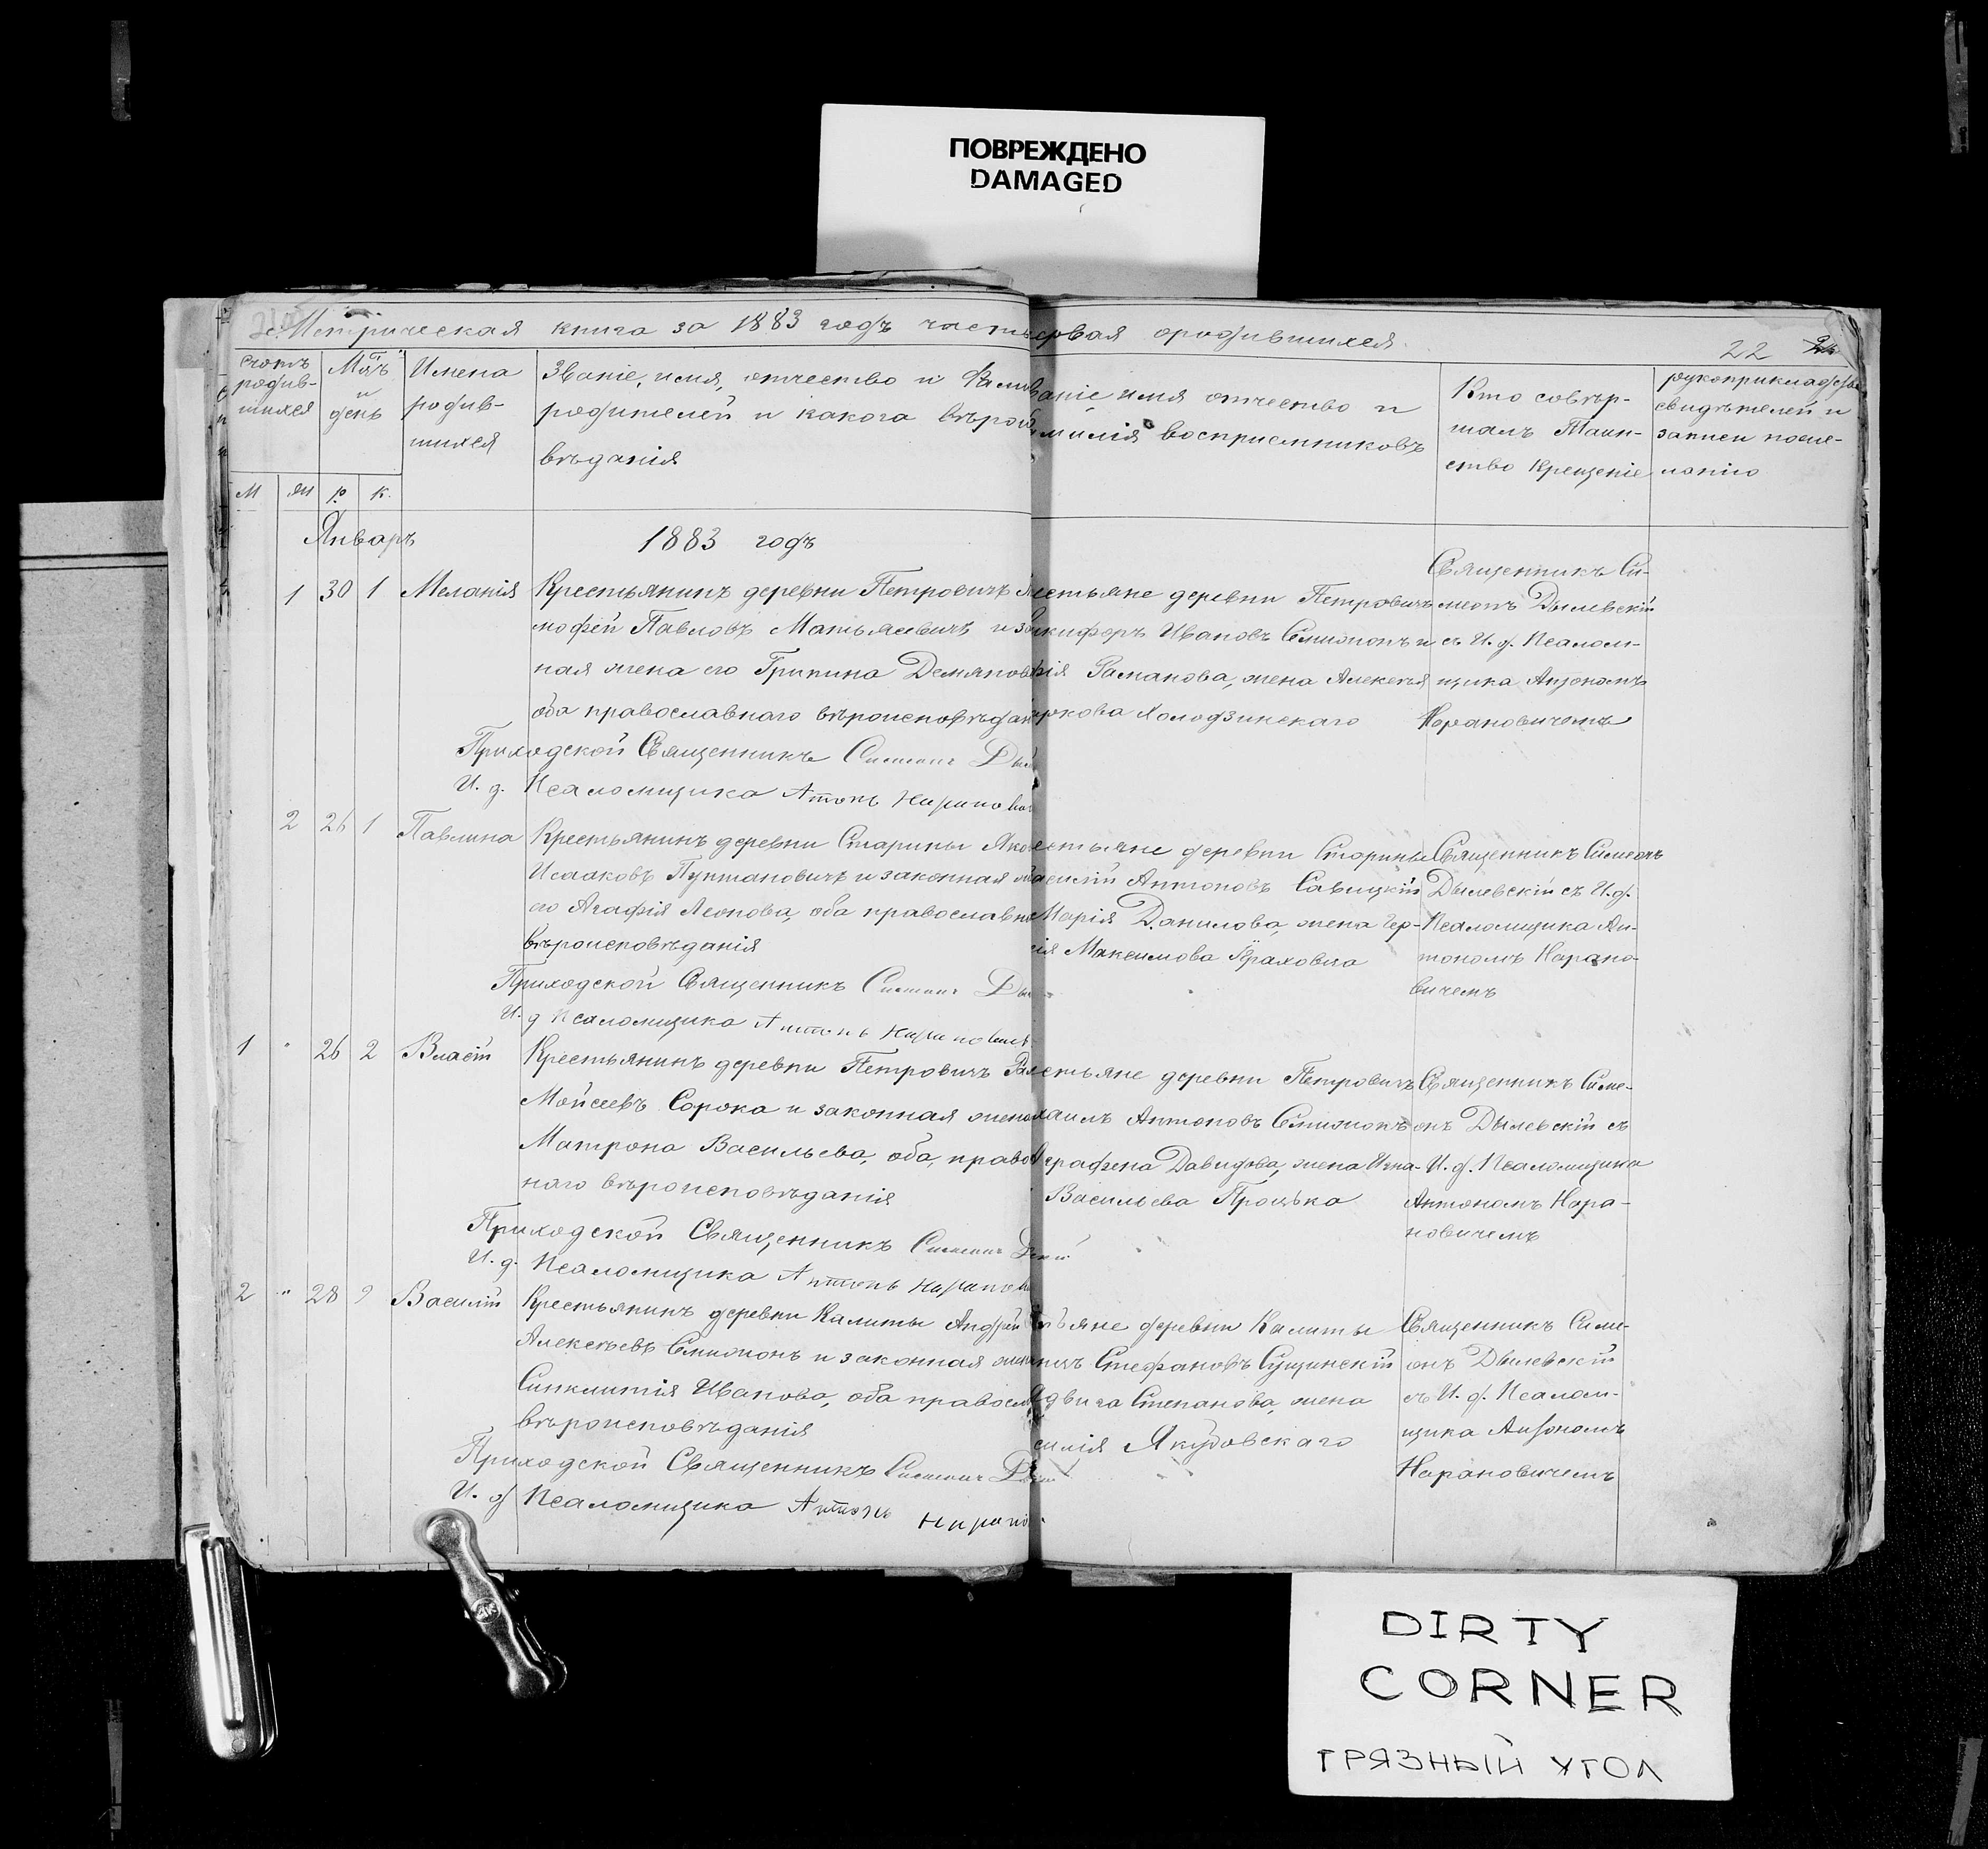 ПОВРЕЖДЕНО
DAMAGED
Метрическая книга за 1883 годъ часть
ервая о родившихся
22
счотъ
родив-
шихся
М
ж
Мцъ
и
день
р.
к.
Имена
родив-
шихся
Званіе, имя, отчество и Фами
родителей и какога вѣроис
вѣданія
ваніе имя отчество и
милія воспріемниковъ
Кто совѣр-
шалъ Таин-
ство Крещеніе
рукоприкладство
свидѣтелей и
записи по же-
ланію
Январь
1883 годъ
1 30 1 Меланія
Крестьянинъ деревни Петровичъ
мофей Павловъ Матьясевичъ и за
ная жена его Грипина Демянов
оба православнаго вѣроисповѣдан
Приходской Священникъ Симеонъ
И. д. Псаломщика Антонъ
естьяне деревни Петровичъ
икифоръ Ивановъ Семионъ и
Романова, жена Алексѣя
аркова Холодзинскаго
Священникъ Си-
меонъ Дылевскій
съ И. д. Псалом-
щика Антономъ
Нарановичемъ
2 26 1 Павлина
Крестьянинъ деревни Старины Яко
Исааковъ Пунтановичъ и законная ж
его Агафія Леонова, оба православн
вѣроисповѣданія
Приходской Священникъ Симеонъ
И. д Псаломщика Антонъ
естьяне деревни Старины
асилій Антоновъ Савицкій
Марія Данилова, жена Гер-
сія Максимова
Священникъ Симеонъ
Дылевскій съ И. д.
Псаломщика Ан-
тономъ Нарано-
вичемъ
1 " 26 2 Власій
Крестьянинъ деревни Петровичъ
Мойсеевъ Сорока и законная жена
Матрона Васильева, оба, право
наго вѣроисповѣданія
Приходской Священникъ Симеонъ
И. д. Псаломщика Антонъ
естьяне деревни Петровичъ
хаилъ Антоновъ Семионъ
Аграфена Давидова, жена Игна-
Васильева Процька
Священникъ Симе-
онъ Дылевскій съ
И. д. Псаломщика
Антономъ Нара-
новичемъ
2 " 28 9 Василій
Крестьянинъ деревни Калиты Андрей
Алексѣевъ Семионъ и законная жен
Синклитія Иванова, оба правосл
вѣроисповѣданія
Приходской Священникъ Симеонъ
И. д Псаломщика Антонъ
тьяне деревни Калиты
Стефановъ Сущинскій
Ядвига Степанова, жена
силія Якубовскаго
Священникъ Симе-
онъ Дылевскій
съ И. д. Псалом-
щика Антономъ
Нарановичемъ
DIRTY
CORNER
ГРЯЗНЫЙ УГОЛ